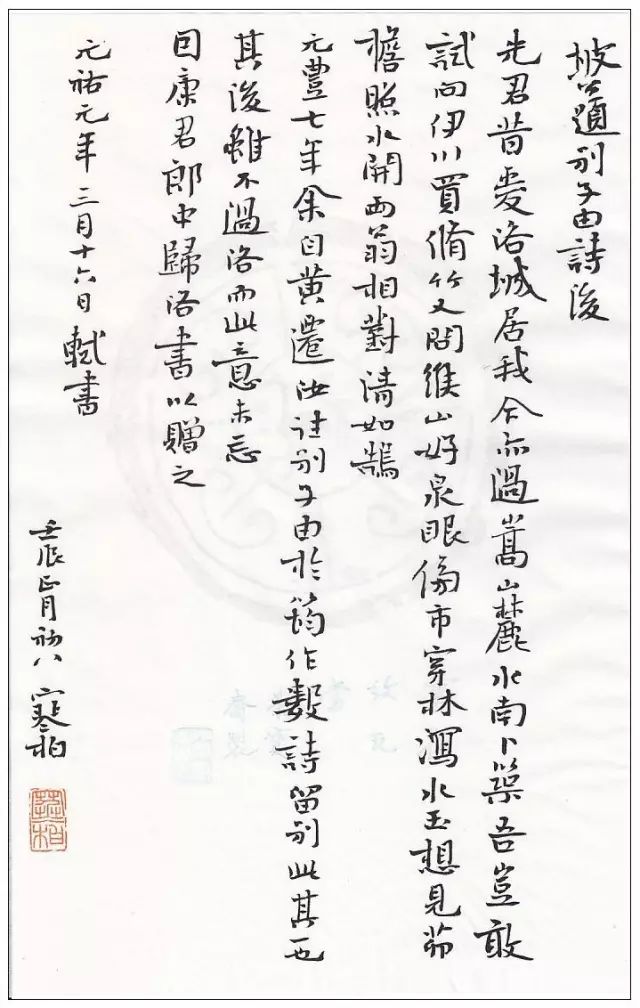 坡公題別子由詩後
先君昔愛洛城居我今亦過嵩山麓水南卜築吾豈敢
試向伊川買脩竹又聞緱山好泉眼傍市穿林瀉水玉想見茆
檐照水開兩翁相對清如鵠
元豐七年余自黄遷汝往別子由於筠作數詩留別此其一也
其後雖不過洛而此意未忘
因康君郎中歸洛書以贈之
元祐元年三月十六日軾書
壬辰正月初八 寒柏